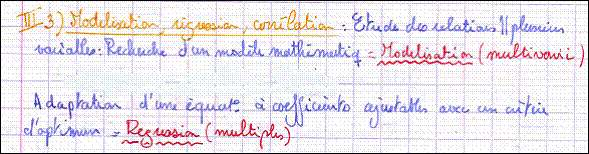 III 3) Modelisation, régression, corrélation : Etude des relations // plusieurs
variables : Recherche d'un modèle mathématiq = Modelisation (multivari)
Adaptation d'une équat° à coefficients ajustables avec un critère
d'optimum = Regression (multiples)